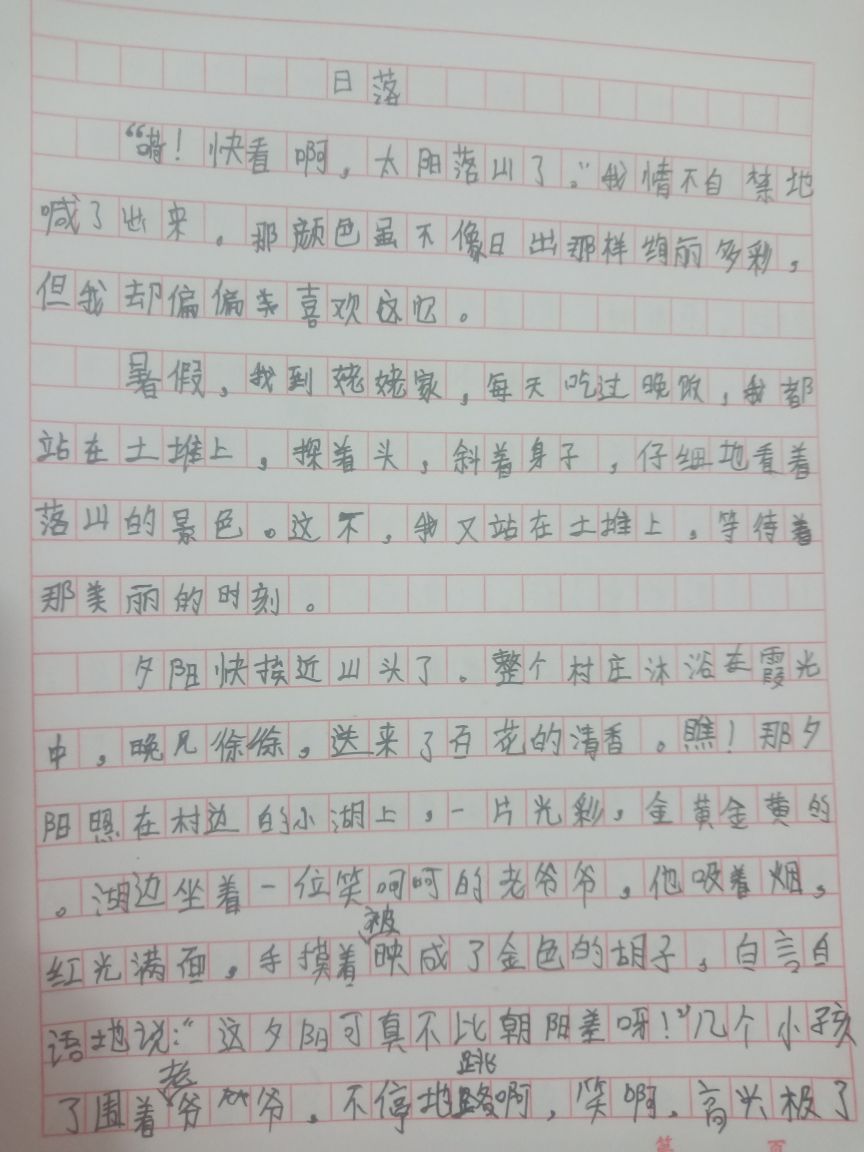 日落
“嗬！快看啊，太阳落山了。”我情不自禁地
喊了出来。那颜色虽不像日出那样绚丽多彩，
但我却偏偏美喜欢这它。
暑假，我到姥姥家，每天吃过晚饭，我都
站在土堆上，探着头，斜着身子，仔细地看着
落山的景色。这不，我又站在土堆上，等待着
那美丽的时刻。
夕阳快挨近山头了。整个村庄沐浴在霞光
中，晚风徐徐，送来了百花的清香。瞧！那夕
阳照在村边的小湖上，一片光彩，金黄金黄的
。湖边坐着一位笑呵呵的老爷爷，他吸着烟，
红光满面，手摸着被映成了金色的胡子，自言自
语地说：“这夕阳可真不比朝阳差呀！”几个小孩
了围着老爷爷，不停地跳啊，笑啊，高兴极了
第 页